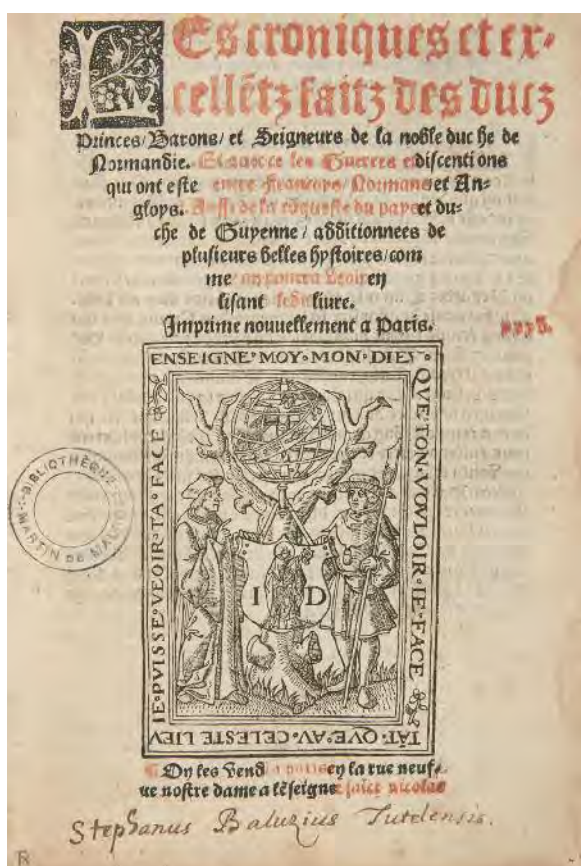 LEs croniques et ex-
cellẽtz faitz des ducz
Princes/Barons/et Seigneurs de la noble duche de
Normandie. Et avecce les Guerres et discentions
qui ont este entre Francoys Normans et An-
gloys. Aussi de la cõqueste du pays et du-
che de Guyenne/ additionnees de
plusieurs belles hystoires/com
me on pourra veoir en
lisant ledit livre.
Imprime nouuellement a Paris.
xxxv.
ENSEIGNE·MOY·MON·DIEV·
QVE·TON·VOVLOIR·IE·FACE
TÃT·QVE·AV·CELESTE·LIEV
IE·PVISSE·VEOIR·TA·FACE
I D
BIBLIOTHÈQUE
MARTIN DE
On les vend a paris en la rue neuf-
ue nostre dame a lẽseigne saĩct nicolas
Stephanus Baluzius Tutelensis.
R